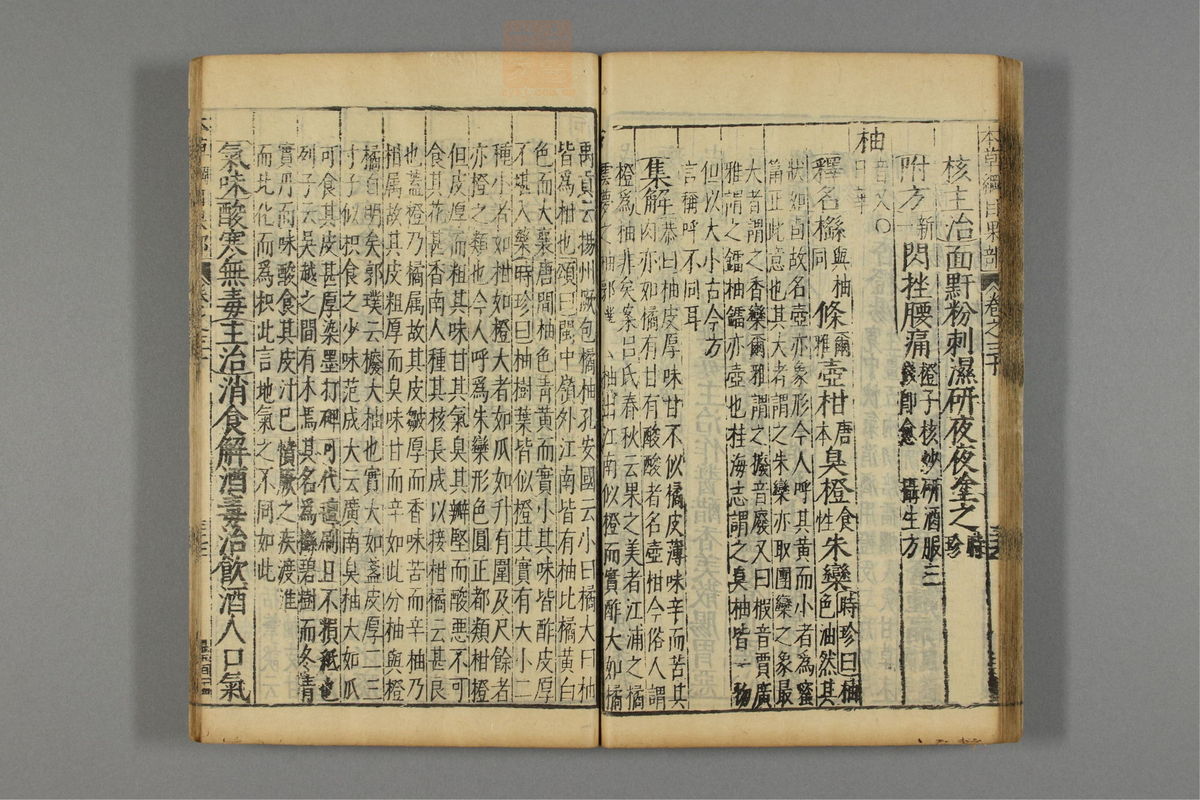 核主治面䵟粉刺濕研夜夜塗之時珍
附方新一閃挫腰痛橙子核炒研酒服三錢即愈攝生方
柚音又○日華
釋名櫾與柚同條爾雅壺柑唐本臭橙食性朱欒時珍曰柚色油然其
狀如卣故名壺亦象形今人呼其黃而小者為蜜
筩正此意也其大者謂之朱欒亦取團欒之象最
大者謂之香欒爾雅謂之櫠音廢又曰椵音賈廣
雅謂之鐳柚鐳亦壺也桂海志謂之臭柚皆一物
但以大小古今方
言稱呼不同耳
集解恭曰柚皮厚味甘不似橘皮薄味辛而苦其
肉亦如橘有甘有酸酸者名壺柑今俗人謂
橙為柚非矣案呂氏春秋云果之美者江浦之橘
雲夢之柚郭璞 柚出江南似橙而實酢大如橘
禹貢云揚州厥包橘柚孔安國云小曰橘大曰柚
皆為柑也頌曰閩中嶺外江南皆有柚比橘黃白
色而大襄唐間柚色青黃而實小其味皆酢皮厚
不堪入藥時珍曰柚樹葉皆似橙其實有大小二
種小者如柑如橙大者如瓜如升有圍及尺餘者
亦橙之類也今人呼為朱欒形色圓正都類柑橙
但皮厚而粗其味甘其氣臭其瓣堅而酸惡不可
食其花甚香南人種其核長成以接柑橘云甚良
也蓋橙乃橘屬故其皮皺厚而香味苦而辛柚乃
柑屬故其皮粗厚而臭味甘而辛如此分柚與橙
橘自明矣郭璞云櫠大柚也實大如盞皮厚二三
寸子似枳食之少味范成大云廣南臭柚大如瓜
可食其皮甚厚染墨打碑可代氊刷且不損紙也
列子云吳越之間有木焉其名為櫾碧樹而冬青
實丹而味酸食其皮汁已憤厥之疾渡淮
而北化而為枳此言地氣之不同如此
氣味酸寒無毒主治消食解酒毒治飲酒人口氣